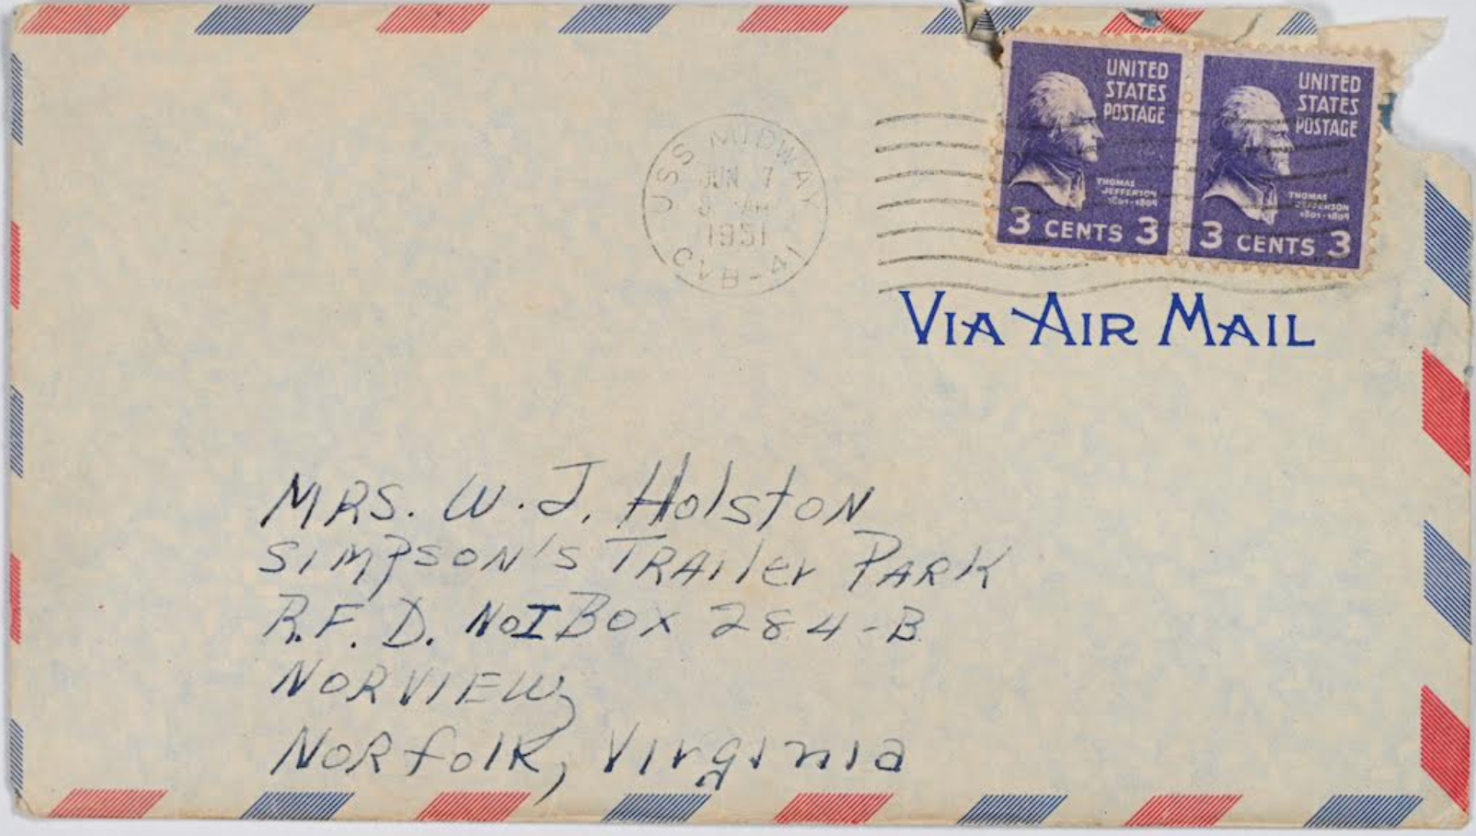 USS MIDWAY
JUN 7
8 AM
1951
CVB-41
UNITED
STATES
POSTAGE
THOMAS
JEFFERSON
1801-1809
3 CENTS 3
UNITED
STATES
POSTAGE
THOMAS
JEFFERSON
1801-1809
3 CENTS 3
VIA AIR MAIL
MRS. W. J. Holston
SIMPSON'S TRAiler PARK
R.F.D. No I Box 284-B
NORVIEW,
NORfolk, Virginia